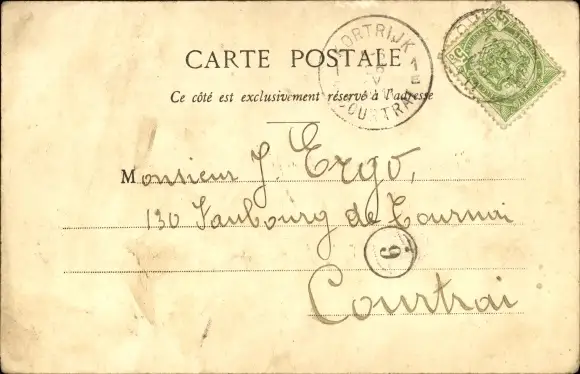 CARTE POSTALE
KORTRIJK
COURTRAI
Ce côté est exclusivement réservé à l'adresse
Monsieur J. Ergo,
130 Faubourg de Tournai
6
Courtrai